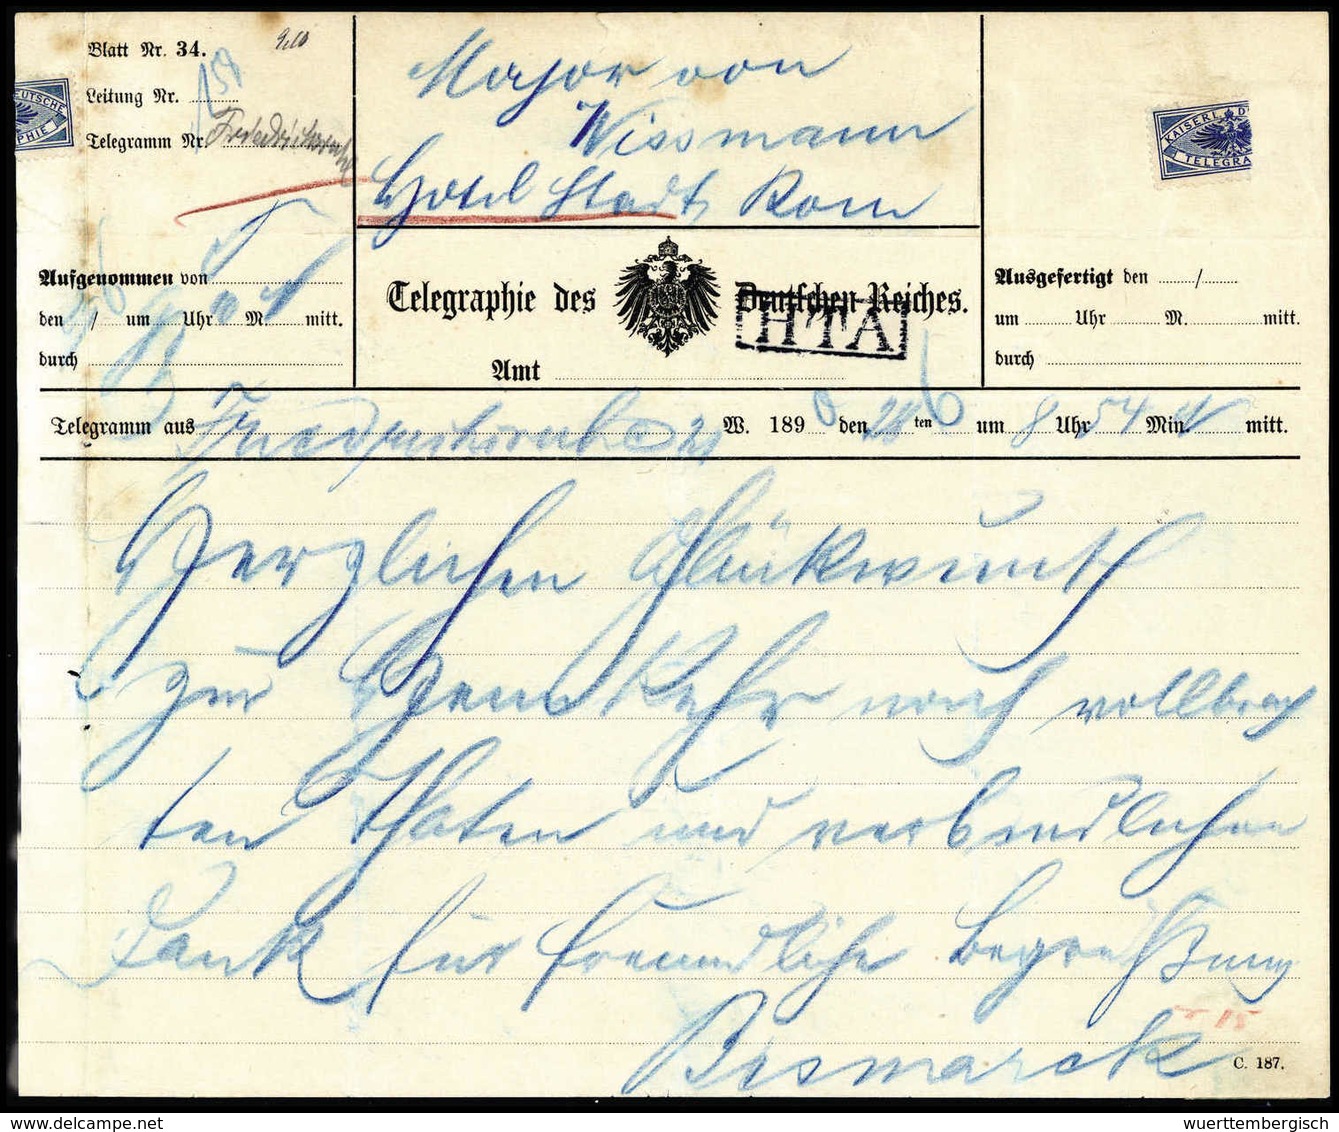 Blatt Nr. 34.
Leitung Nr.
Telegramm Nr. Friedrichsruh
Major von
Wissmann
Hotel Stadt Rom
DEUTSCHE
PHIE
KAISERL. D
TELEGRA
Aufgenommen von
den / um Uhr M. mitt.
durch
Telegraphie des Deutschen Reiches.
HTA
Amt
Ausgefertigt den /
um Uhr M. mitt.
durch
Telegramm aus Friedrichsruh W. 189 den ten um 8 Uhr 54 Min mitt.
Herzlichen Glückwunsch
zur Heimkehr nach vollbrach
ten Thaten und verbindlichen
Dank für freundliche Begrüßung
Bismarck
C. 187.
wuerttembergisch